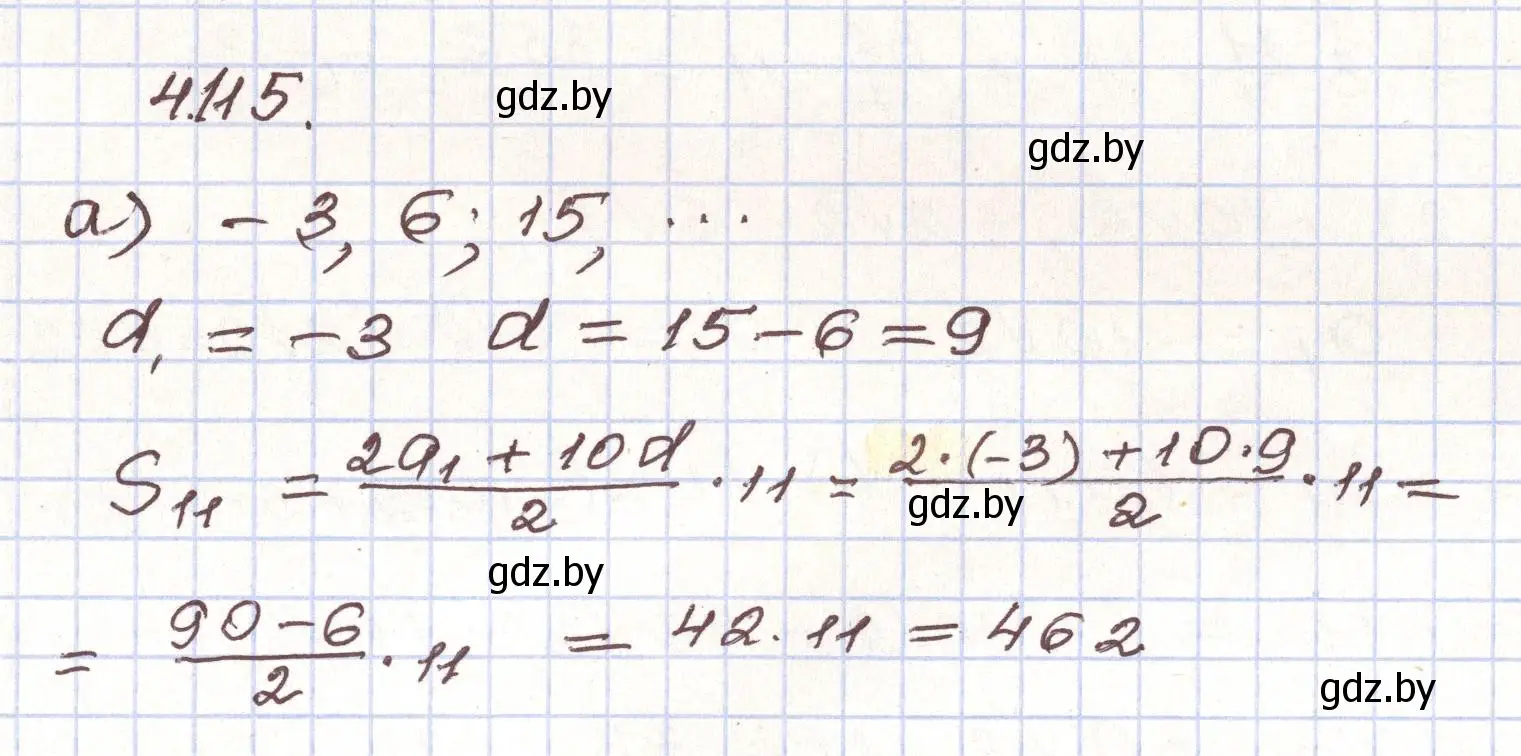 4.115.
gdz.by
gdz.by
а) - 3, 6; 15, ...
d₁ = -3 d = 15 - 6 = 9
S₁₁ = (2a₁ + 10d)/2 · 11 = (2·(-3) + 10·9)/2 · 11 =
gdz.by
gdz.by
= (90 - 6)/2 · 11 = 42 · 11 = 462
gdz.by